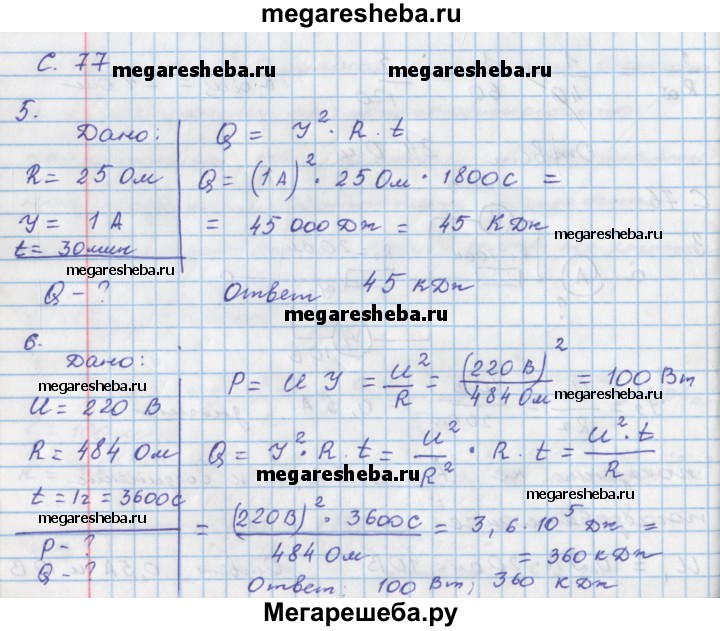 megaresheba.ru
С. 77
megaresheba.ru
megaresheba.ru
5.
Дано:
R = 25 Ом
У = 1 А
t = 30 мин
megaresheba.ru
Q - ?
Q = У² · R · t
Q = (1 А)² · 25 Ом · 1800 с =
= 45 000 Дж = 45 КДж
megaresheba.ru
Ответ 45 кДж
megaresheba.ru
6.
Дано:
megaresheba.ru
U = 220 В
R = 484 Ом
t = 1г = 3600с
megaresheba.ru
P - ?
Q - ?
P = U У = U²/R = (220 В)²/484 Ом = 100 Вт
megaresheba.ru
Q = У² · R · t = U²/R² · R · t = U² · t/R
megaresheba.ru
megaresheba.ru
= (220 В)² · 3600с/484 Ом = 3,6 · 10⁵ Дж =
= 360 кДж
Ответ: 100 Вт; 360 кДж
Мегарешеба.ру